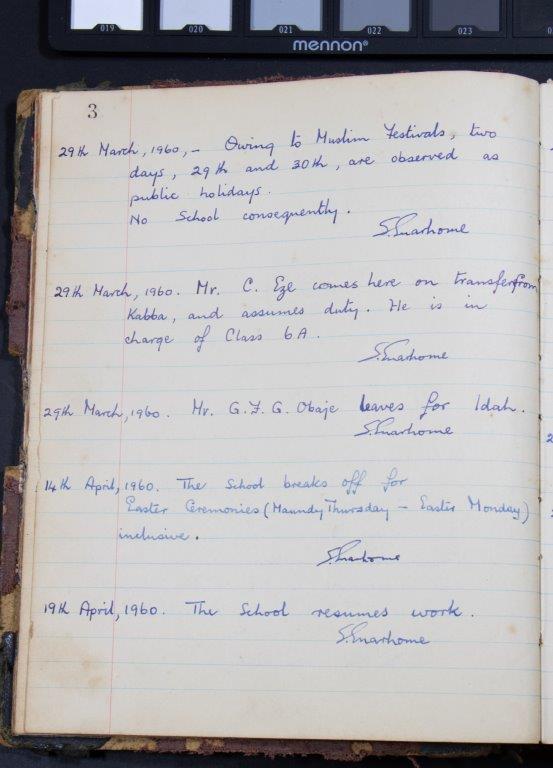 019 020 021 022 023
mennon®
3
29th March, 1960, – Owing to Muslim Festivals, two
days, 29th and 30th, are observed as
public holidays.
No School consequently.
29th March, 1960. Mr. C. Eze comes here on transfer from
Kabba, and assumes duty. He is in
charge of Class 6A.
29th March, 1960. Mr. G. F. G. Obaje leaves for Idah.
14th April, 1960. The School breaks off for
Easter Ceremonies (Maundy Thursday – Easter Monday)
inclusive.
19th April, 1960. The School resumes work.